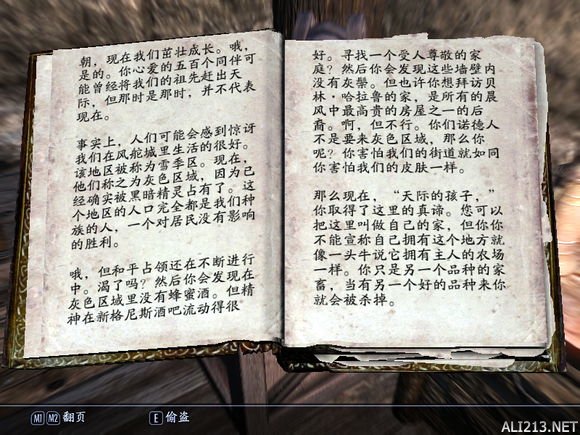 朝，现在我们茁壮成长。哦，
是的。你心爱的五百个同伴可
能曾经将我们的祖先赶出天
际，但那时是那时，并不代表
现在。
事实上，人们可能会感到惊讶
我们在风舵城里生活的很好。
该地区被称为雪季区。现在，
他们称之为灰色区域，因为已
经确实被黑暗精灵占有了。这
个地区的人口完全都是我们种
族的人，一个对居民没有影响
的胜利。
哦，但和平占领还在不断进行
中。渴了吗？然后你会发现在
灰色区域里没有蜂蜜酒。但精
神在新格尼斯酒吧流动得很
好。寻找一个受人尊敬的家
庭？然后你会发现这些墙壁内
没有灰祭。但也许你想拜访贝
林·哈拉鲁的家，是所有的晨
风中最高贵的房屋之一的后
裔。啊，但不行。你们诺德人
不是要来灰色区域，那么你
呢？你害怕我们的街道就如同
你害怕我们的皮肤一样。
那么现在，“天际的孩子，”
你取得了这里的真谛。您可以
把这里叫做自己的家，但你你
不能宣称自己拥有这个地方就
像一头牛说它拥有主人的农场
一样。你只是另一个品种的家
畜，当有另一个好的品种来你
就会被杀掉。
M1 M2 翻页
E 偷盗
ALI213.NET